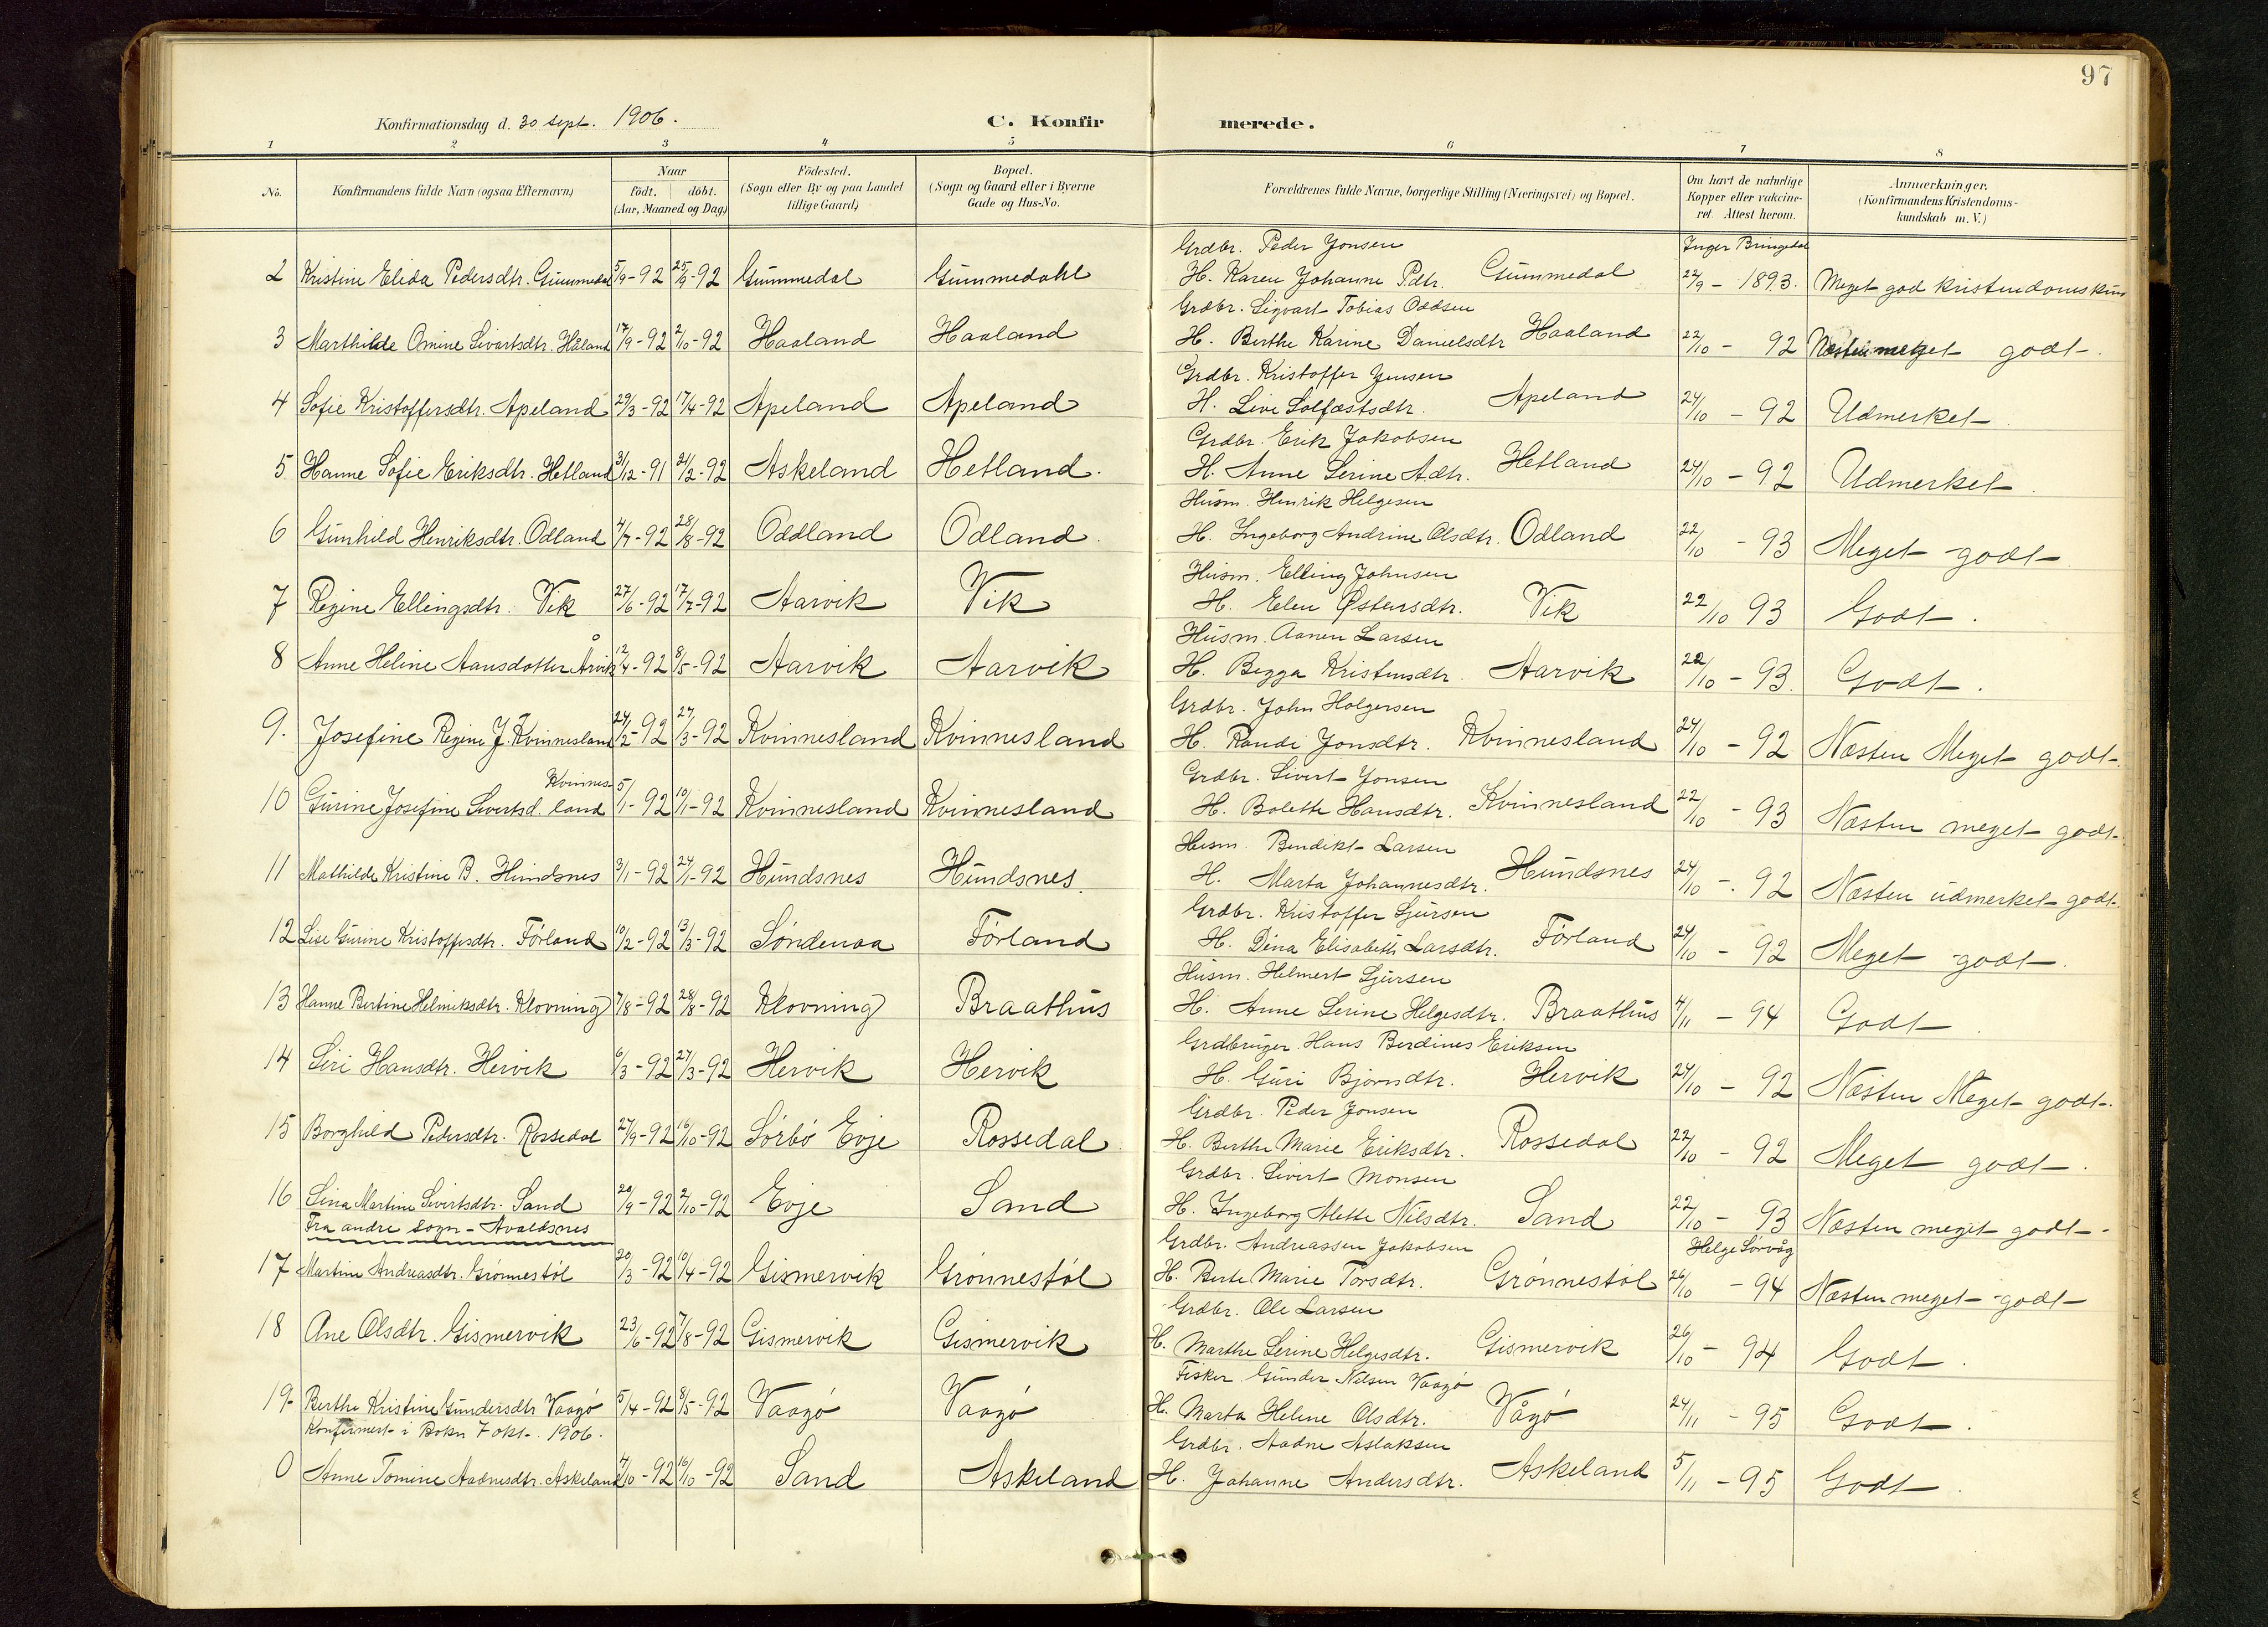 97
Konfirmationsdag d. 30 Sept. 1906.
C. Konfirmerede.
1 2 3 4 5 6 7 8
No.
Konfirmandens fulde Navn (ogsaa Efternavn)
Naar
födt. döbt.
(Aar, Maaned og Dag)
Födested.
(Sogn eller By og paa Landet
tillige Gaard)
Bopæl.
(Sogn og Gaard eller i Byerne
Gade og Hus-No.
Forældrenes fulde Navne, borgerlige Stilling (Næringsvei) og Bopæl.
Om havt de naturlige
Kopper eller vakcine-
ret. Attest herom.
Anmærkninger.
(Konfirmandens Kristendoms-
kundskab m. V.)
Grdbr. Peder Jonsen Inger Bringedal
2 Kristine Elida Pedersdtr. Gummedal 5/9-92 25/9-92 Gummedal Gummedahl H. Karen Johanne Pdtr. Gummedal 22/9 - 1893. Meget god kristendomskun
Grdbr. Sigvart Tobias Oddsen
3 Marthilde Omine Sivartsdtr. Håland 17/9-92 2/10-92 Haaland Haaland H. Berthe Karine Danielsdtr Haaland 22/10 - 92 Næsten meget godt.
Grdbr. Kristoffer Jensen
4 Sofie Kristoffersdtr. Apeland 29/3-92 17/4-92 Apeland Apeland H. Live Solfæstsdtr. Apeland 24/10 - 92 Udmerket
Grdbr. Erik Jakobsen
5 Hanne Sofie Eriksdtr. Hetland 31/12-91 21/2-92 Askeland Hetland. H. Anne Serine Adtr. Hetland 24/10 - 92 Udmerket
Husm. Henrik Helgesen
6 Gunhild Henriksdtr. Odland 4/7-92 28/8-92 Oddland Odland. H. Ingeborg Andrine Olsdtr. Odland 22/10 - 93 Meget godt
Husm. Elling Johnsen
7 Regine Ellingsdtr. Vik 27/6-92 17/7-92 Aarvik Vik H. Elen Østensdtr. Vik 22/10 93 Godt.
Husm. Aanen Larsen
8 Anne Heline Aansdotter Årvik 12/4-92 8/5-92 Aarvik Aarvik H. Begga Kristensdtr. Aarvik 22/10 - 93. Godt.
Grdbr. John Holgersen
9. Josefine Regine J. Kvinnesland 24/2-92 27/3-92 Kvinnesland Kvinnesland H. Randi Jonsdtr. Kvinnesland 24/10 - 92 Næsten Meget godt.
Kvinnes- Grdbr. Sivert Jonsen
10 Gurine Josefine Sivertsd. land 5/1-92 10/1-92 Kvinnesland Kvinnesland H. Bolette Hansdtr. Kvinnesland 22/10 - 93 Næsten meget godt.
Husm. Bendikt Larsen
11 Mathilde Kristine B. Hundsnes 3/1-92 24/1-92 Hundsnes Hundsnes. H. Marta Johannesdtr. Hundsnes 24/10 - 92 Næsten udmerket godt.
Grdbr. Kristoffer Sjursen
12 Lise Gurine Kristoffersdtr. Förland 10/2-92 13/3-92 Söndenaa Förland H. Dina Elisabeth Larsdtr. Förland 24/10 - 92 Meget godt.
Husm. Helmert Sjursen
13 Hanne Bertine Helmiksdtr. Klovning 7/8-92 28/8-92 Klovning Braathus H. Anne Serine Helgesdtr. Braathus 4/11 - 94 Godt.
Grdbruger Hans Berdines Eriksen
14 Siri Hansdtr. Hervik 6/3-92 27/3-92 Hervik Hervik H. Guri Bjorndtr. Hervik 24/10 - 92 Næsten Meget godt.
Grdbr. Peder Jonsen
15 Borghild Pedersdtr. Rossedal 27/9-92 16/10-92 Sörbö Evje Rossedal H. Berthe Marie Eriksdtr. Rossedal 22/10 - 92 Meget godt.
Grdbr. Sivert Monsen
16 Sina Martine Sivertsdtr. Sand 20/9-92 2/10-92 Evje Sand H. Ingeborg Alette Nilsdtr. Sand 22/10 - 93 Næsten meget godt.
Fra andre sogn - Avaldsnes Grdbr. Andreassen Jakobsen Helge Sörvåg
17 Martine Andreasdtr. Grönnestöl 20/3-92 10/4-92 Gismervik Grönnestöl H. Berte Marie Torsdtr. Grönnestöl 26/10 - 94 Næsten meget godt
Grdbr. Ole Larsen
18 Ane Olsdtr. Gismervik 23/6-92 7/8-92 Gismervik Gismervik H. Marthe Serine Helgesdtr. Gismervik 26/10 - 94 Godt.
Fisker Gunder Nilsen Vaagö
19 Berthe Kristine Gundersdtr Vaagö 5/4-92 8/5-92 Vaagö Vaagö H. Marta Helene Olsdtr. Vågö 24/11 - 95 Godt.
Konfirmert i Bokn 7 okt. 1906. Grdbr. Aadne Aslaksen
0 Anne Tomine Aadnesdtr. Askeland 4/10-92 16/10-92 Sand Askeland H. Johanne Andersdtr. Askeland 5/11 - 95 Godt.